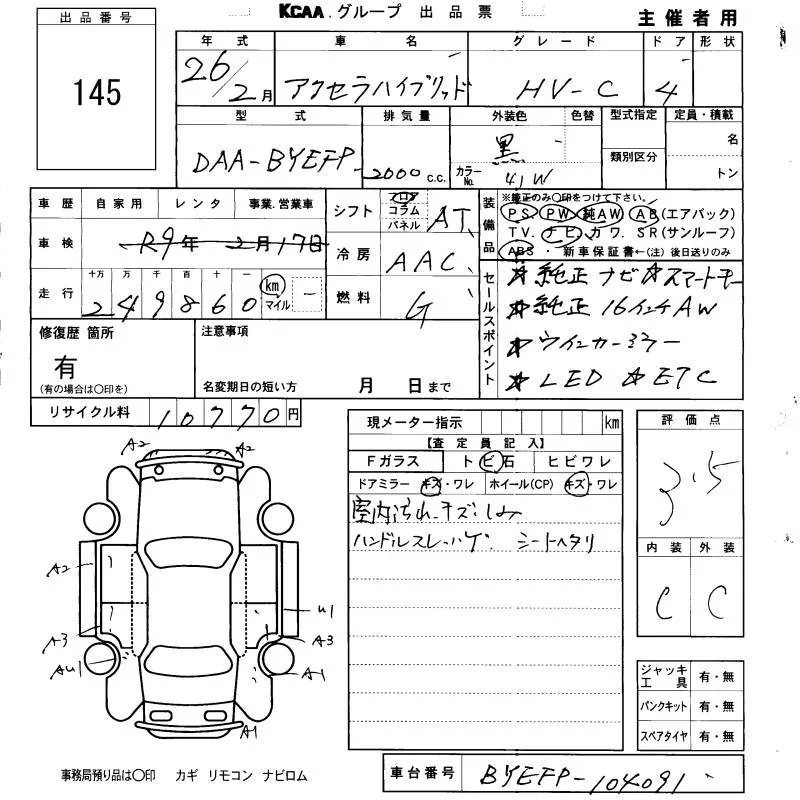 KCAA.グループ 出品票
主催者用
出品番号
145
年式 車名 グレード ドア 形状
26/2月 アクセラハイブリッド HV-C 4
型式 排気量 外装色 色替 型式指定 定員・積載
DAA-BYEFP 2000 c.c. 黒 類別区分 名
カラーNo. 41W トン
車歴 自家用 レンタ 事業.営業車
車検 R9年2月17日
走行 十万 万 千 百 十 一
249860 km マイル
シフト フロア コラム パネル AT
冷房 AAC
燃料 G
装備品
※純正のみ〇印をつけて下さい。
PS PW 純AW AB(エアバック)
TV. ナビ. カワ. SR(サンルーフ)
ABS. 新車保証書←(注)後日送りのみ
セールスポイント
☆純正ナビ ☆スマートキー
☆純正16インチAW
☆ウインカーミラー
☆LED ☆ETC
修復歴 箇所
有
(有の場合は〇印を)
注意事項
名変期日の短い方 月 日まで
リサイクル料 10770円
現メーター指示 km
【査定員記入】
Fガラス トビ石 ヒビワレ
ドアミラー キズ・ワレ ホイール(CP) キズ・ワレ
室内汚れ.キズ.しみ
ハンドルスレ.ハゲ シートヘタリ
評価点
3.5
内装 外装
C C
ジャッキ工具 有・無
パンクキット 有・無
スペアタイヤ 有・無
A2 A2
A2
A3
AU1
U1
A3
A1
A1
事務局預り品は〇印 カギ リモコン ナビロム
車台番号 BYEFP-104091